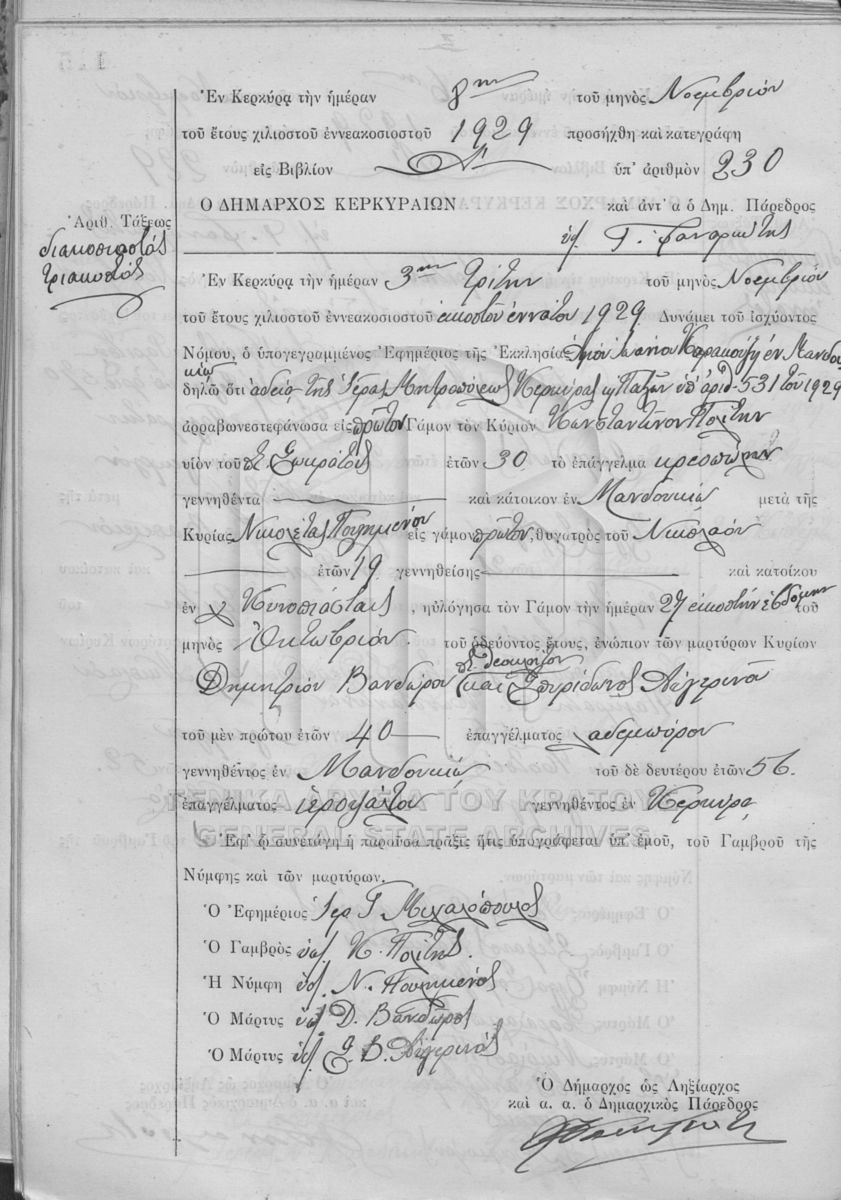 Ἐν Κερκύρᾳ τὴν ἡμέραν 8ην τοῦ μηνὸς Νοεμβρίου
τοῦ ἔτους χιλιοστοῦ ἐννεακοσιοστοῦ 1929 προσήχθη καὶ κατεγράφη
εἰς Βιβλίον ὑπ' ἀριθμὸν 230
Ο ΔΗΜΑΡΧΟΣ ΚΕΡΚΥΡΑΙΩΝ καὶ ἀντ' α ὁ Δημ. Πάρεδρος
Ἀριθ. Τάξεως
διακοσιοστὸς
τριακοστὸς
Ἐν Κερκύρᾳ τὴν ἡμέραν 3ην τρίτην τοῦ μηνὸς Νοεμβρίου
τοῦ ἔτους χιλιοστοῦ ἐννεακοσιοστοῦ εἰκοστοῦ ἐννάτου 1929 Δυνάμει τοῦ ἰσχύοντος
Νόμου, ὁ ὑπογεγραμμένος Ἐφημέριος τῆς Ἐκκλησίας ἐν Μανδου
κίῳ
δηλῶ ὅτι ἀδείᾳ τῆς Ἱερᾶς Μητροπόλεως Κερκύρας κ Παξῶν ὑπ' ἀριθ. 531 τοῦ 1929
ἀρραβωνεστεφάνωσα εἰς πρῶτον Γάμον τὸν Κύριον Κωνσταντῖνον Πολίτην
υἱὸν τοῦ Σωκράτους ἐτῶν 30 τὸ ἐπάγγελμα κρεοπώλην
γεννηθέντα καὶ κάτοικον ἐν Μανδουκίῳ μετὰ τῆς
Κυρίας Νικολέτας Ποιημένου εἰς γάμον πρῶτον, θυγατρὸς τοῦ Νικολάου
ἐτῶν 19 γεννηθείσης καὶ κατοίκου
ἐν Κυνοπιάσταις, ηὐλόγησα τὸν Γάμον τὴν ἡμέραν 27 εἰκοστὴν ἑβδόμην τοῦ
μηνὸς Ὀκτωβρίου. τοῦ ὁδεύοντος ἔτους, ἐνώπιον τῶν μαρτύρων Κυρίων
Δημητρίου Βανδώρου καὶ Σπυρίδωνος Αὐγερινοῦ
τοῦ μὲν πρώτου ἐτῶν 40 ἐπαγγέλματος
γεννηθέντος ἐν Μανδουκίῳ τοῦ δὲ δευτέρου ἐτῶν 56.
ἐπαγγέλματος ἱεροψάλτου γεννηθέντος ἐν Κερκύρᾳ
ΓΕΝΙΚΑ ΑΡΧΕΙΑ ΤΟΥ ΚΡΑΤΟΥΣ
GENERAL STATE ARCHIVES
Ἐφ' ᾧ συνετάγη ἡ παροῦσα πρᾶξις ἥτις ὑπογράφεται ὑπ' ἐμοῦ, τοῦ Γαμβροῦ τῆς
Νύμφης καὶ τῶν μαρτύρων.
Ὁ Ἐφημέριος Ἱερ Γ Μιχαλόπουλος
Ὁ Γαμβρὸς Κ. Πολίτης.
Ἡ Νύμφη Ν. Ποιημένου
Ὁ Μάρτυς Δ. Βανδῶρος
Ὁ Μάρτυς Αὐγερινὸς
Ὁ Δήμαρχος ὡς Ληξίαρχος
καὶ α. α. ὁ Δημαρχικὸς Πάρεδρος